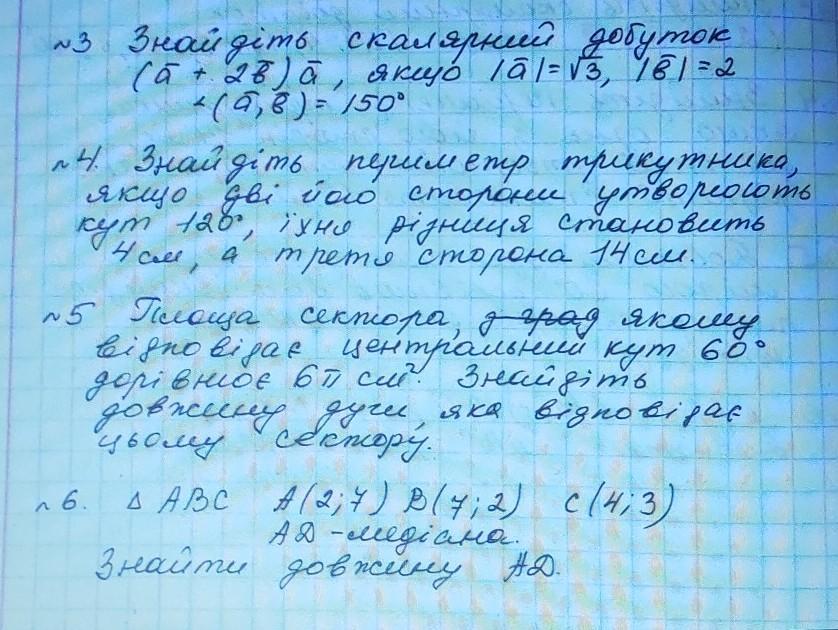 №3 Знайдіть скалярний добуток
(a̅ + 2b̅) a̅, якщо |a̅|=√3, |b̅|=2
∠(a̅, b̅) = 150°
№4. Знайдіть периметр трикутника,
якщо дві його сторони утворюють
кут 120°, їхня різниця становить
4 см, а третя сторона 14 см.
№5 Площа сектора, д град якому
відповідає центральний кут 60°
дорівнює 6π см². Знайдіть
довжину дуги, яка відповідає
цьому сектору.
№6. △ ABC A(2;7) B(7;2) C(4;3)
AD - медіана.
Знайти довжину AD.